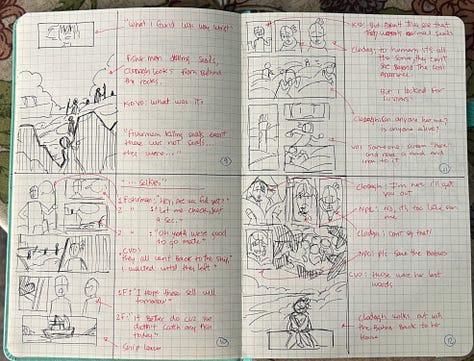 What I found was way worst
Fisherman killing seals,
Clodagh looks from behind
the rocks.
Kid VO: What was it?
"Fisherman killing seals, except
those was not seals...
they were..."
9
"...Selkies"
1 Fisherman: "Hey, are we full yet?"
2 " " : "Let me check, just
a sec."
2 " " : "Oh yeah we're good
to go mate."
CVO:
"They all went back to the ship,
I waited until they left"
1F: "I hope these sell well
tomorrow"
2F: "It better do cuz we
didn't catch any fish
today"
Ship leave
10
Kid: But didn't they see that
they weren't normal seals
Clodagh: to humans it's all
the same, they can't
see beyond the seal
But I looked for
survivors
Clodagh: Can anyone hear me?
Is anyone alive?
VO: Someone
11
Clodagh: I'll get
you out
NPC: No, it's too late for
me
Clodagh: don't say that!
NPC: pls save the babies
CVO: those were her last
words
Clodagh walks out with
the babies back to her
house
12